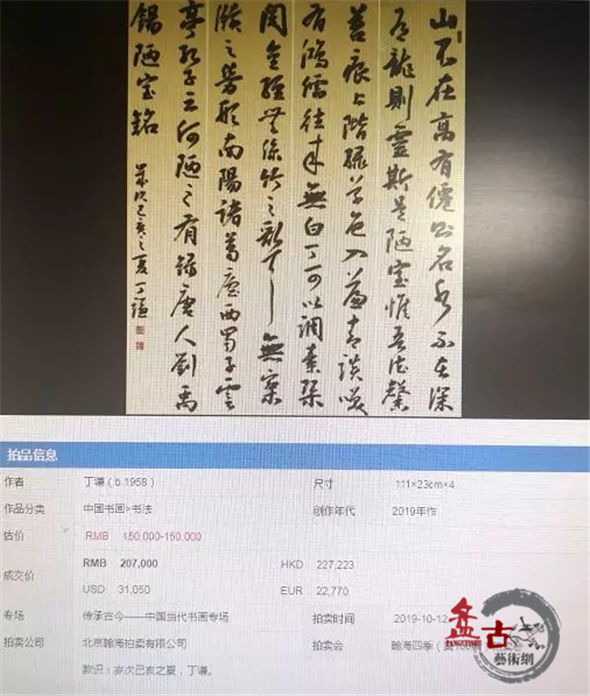 山不在高有僊則名水不在深
有龍則靈斯是陋室惟吾德馨
苔痕上階綠草色入簾青談笑
有鴻儒往來無白丁可以調素琴
閱金經無絲竹之亂耳無案
牘之勞形南陽諸葛廬西蜀子雲
亭孔子云何陋之有錄唐人劉禹
錫陋室銘
歲次己亥之夏丁謙
拍品信息
作者 丁谦（b.1958） 尺寸 111×23cm×4
作品分类 中国书画>书法 创作年代 2019年作
估价 RMB 150,000-150,000
成交价 RMB 207,000 HKD 227,223
USD 31,050 EUR 22,770
专场 传承古今——中国当代书画专场 拍卖时间 2019-10-12
拍卖公司 北京翰海拍卖有限公司 拍卖会 瀚海四季（
款识：岁次己亥之夏，丁谦。
盘古
PANGUYISHU
藝術網